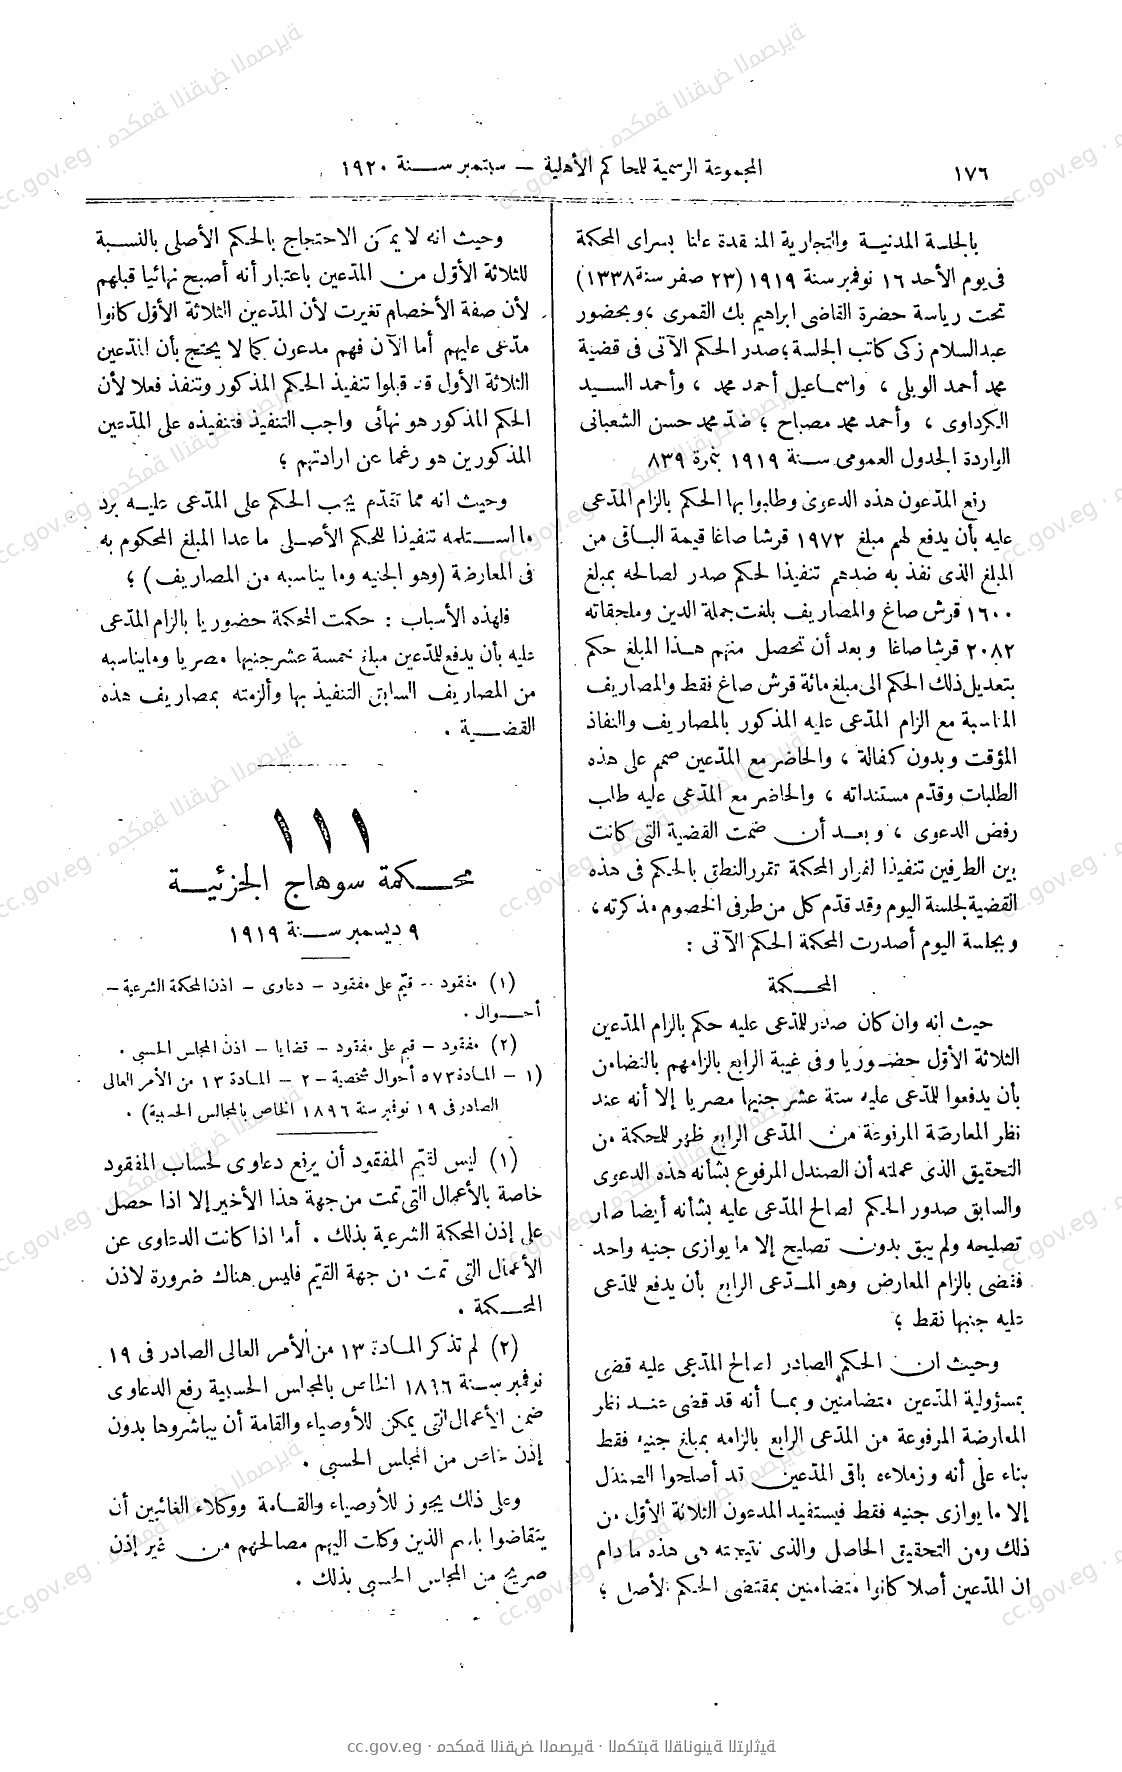 ١٧٦
المجموعة الرسمية للمحاكم الأهلية — سبتمبر سنة ١٩٢٠
بالجلسة المدنية والتجارية المنعقدة علنا بسراى المحكمة
فى يوم الأحد ١٦ نوفمبر سنة ١٩١٩ (٢٣ صفر سنة ١٣٣٨)
تحت رياسة حضرة القاضى ابراهيم بك القمرى ، وبحضور
عبدالسلام زكى كاتب الجلسة ؛ صدر الحكم الآتى فى قضية
محمد أحمد الويلى ، واسماعيل أحمد محمد ، وأحمد السيد
الكرداوى ، وأحمد محمد مصباح ؛ ضدّ محمد حسن الشعبانى
الواردة الجدول العمومى سنة ١٩١٩ بنمرة ٨٣٩
رفع المدّعون هذه الدعوى وطلبوا بها الحكم بالزام المدّعى
عليه بأن يدفع لهم مبلغ ١٩٧٢ قرشا صاغا قيمة الباقى من
المبلغ الذى نفذ به ضدهم تنفيذا لحكم صدر لصالحه بمبلغ
١٦٠٠ قرش صاغ والمصاريف بلغت جملة الدين وملحقاته
٢٠٨٢ قرشا صاغا وبعد أن تحصل منهم هذا المبلغ حكم
بتعديل ذلك الحكم الى مبلغ مائة قرش صاغ فقط والمصاريف
المناسبة مع الزام المدّعى عليه المذكور بالمصاريف والنفاذ
المؤقت وبدون كفالة ، والحاضر مع المدّعين صمم على هذه
الطلبات وقدّم مستنداته ، والحاضر مع المدّعى عليه طلب
رفض الدعوى ، وبعد أن ضمت القضية التى كانت
بين الطرفين تنفيذا لقرار المحكمة تقرر النطق بالحكم فى هذه
القضية لجلسة اليوم وقد قدّم كل من طرفى الخصوم مذكرته ،
وبجلسة اليوم أصدرت المحكمة الحكم الآتى :
المحكمة
حيث انه وان كان صدر للمدّعى عليه حكم بالزام المدّعين
الثلاثة الأوّل حضوريا وفى غيبة الرابع بالزامهم بالتضامن
بأن يدفعوا للمدّعى عليه ستة عشر جنيها مصريا إلا أنه عند
نظر المعارضة المرفوعة من المدّعى الرابع ظهر للمحكمة من
التحقيق الذى عملته أن الصندل المرفوع بشأنه هذه الدعوى
والسابق صدور الحكم لصالح المدّعى عليه بشأنه أيضا صار
تصليحه ولم يبق بدون تصليح إلا ما يوازى جنيه واحد
فقضى بالزام المعارض وهو المدّعى الرابع بأن يدفع للمدّعى
عليه جنيها فقط ؛
وحيث ان الحكم الصادر لصالح المدّعى عليه قضى
بمسؤولية المدّعين متضامنين وبما أنه قد قضى عند نظر
المعارضة المرفوعة من المدّعى الرابع بالزامه بمبلغ جنيه فقط
بناء على أنه وزملاءه باقى المدّعين قد أصلحوا الصندل
إلا ما يوازى جنيه فقط فيستفيد المدعون الثلاثة الأوّل من
ذلك ومن التحقيق الحاصل والذى نتيجته هى هذه ما دام
ان المدّعين أصلا كانوا متضامنين بمقتضى الحكم الأصلى ؛
وحيث انه لا يمكن الاحتجاج بالحكم الأصلى بالنسبة
للثلاثة الأوّل من المدّعين باعتبار أنه أصبح نهائيا قبلهم
لأن صفة الأخصام تغيرت لأن المدّعين الثلاثة الأوّل كانوا
مدّعى عليهم أما الآن فهم مدعون كما لا يحتج بأن المدّعين
الثلاثة الأوّل قد قبلوا تنفيذ الحكم المذكور وتنفذ فعلا لأن
الحكم المذكور هو نهائى واجب التنفيذ فتنفيذه على المدّعين
المذكورين هو رغما عن ارادتهم ؛
وحيث انه مما تقدّم يجب الحكم على المدّعى عليه برد
ما استلمه تنفيذا للحكم الأصلى ما عدا المبلغ المحكوم به
فى المعارضة (وهو الجنيه وما يناسبه من المصاريف) ؛
فلهذه الأسباب : حكمت المحكمة حضوريا بالزام المدّعى
عليه بأن يدفع للمدّعين مبلغ خمسة عشر جنيها مصريا وما يناسبه
من المصاريف السابق التنفيذ بها وألزمته بمصاريف هذه
القضية .
١١١
محكمة سوهاج الجزئية
٩ ديسمبر سنة ١٩١٩
(١) مفقود — قيّم على مفقود — دعاوى — اذن المحكمة الشرعية —
أحوال .
(٢) مفقود — قيم على مفقود — قضايا — اذن المجلس الحسبى .
(١ — المادة ٥٧٣ أحوال شخصية — ٢ — المادة ١٣ من الأمر العالى
الصادر فى ١٩ نوفمبر سنة ١٨٩٦ الخاص بالمجالس الحسبية) .
(١) ليس لقيّم المفقود أن يرفع دعاوى لحساب المفقود
خاصة بالأعمال التى تمت من جهة هذا الأخير إلا اذا حصل
على إذن المحكمة الشرعية بذلك . أما اذا كانت الدعاوى عن
الأعمال التى تمت من جهة القيّم فليس هناك ضرورة لاذن
المحكمة .
(٢) لم تذكر المادة ١٣ من الأمر العالى الصادر فى ١٩
نوفمبر سنة ١٨٩٦ الخاص بالمجالس الحسبية رفع الدعاوى
ضمن الأعمال التى يمكن للأوصياء والقامة أن يباشروها بدون
إذن خاص من المجلس الحسبى .
وعلى ذلك يجوز للأوصياء والقامة ووكلاء الغائبين أن
يتقاضوا باسم الذين وكلت اليهم مصالحهم من غير إذن
صريح من المجلس الحسبى بذلك .
cc.gov.eg · محكمة النقض المصرية · المكتبة القانونية التراثية